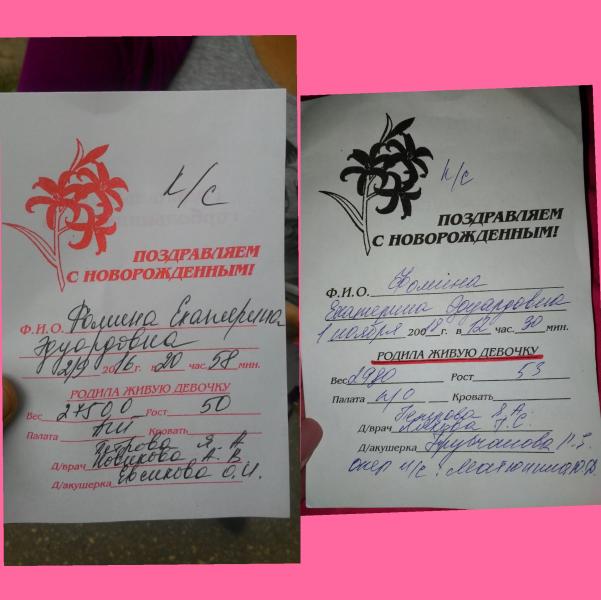 к/с
ПОЗДРАВЛЯЕМ
С НОВОРОЖДЕННЫМ!
Ф.И.О. Фомина Екатерина
Эдуардовна
2/9 2016 г. в 20 час. 58 мин.
РОДИЛА ЖИВУЮ ДЕВОЧКУ
Вес 27500 Рост 50
Палата Кровать
Петрова Я. А
Д/врач Новикова А. В
Д/акушерка Евсикова О.И.
к/с
ПОЗДРАВЛЯЕМ
С НОВОРОЖДЕННЫМ!
Ф.И.О. Фомина
Екатерина Эдуардовна
1 ноября 20018 г. в 12 час. 30 мин.
РОДИЛА ЖИВУЮ ДЕВОЧКУ
Вес 2980 Рост 53
Палата п/о Кровать
Петрова Я.А.
Д/врач
Д/акушерка
Опер м/с: Матюшина